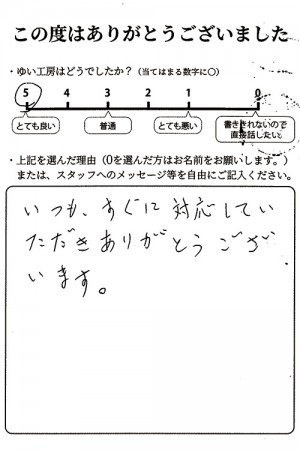 この度はありがとうございました
・ゆい工房はどうでしたか？（当てはまる数字に○）
5 4 3 2 1 0
とても良い 普通 とても悪い 書ききれないので
直接話したい。
・上記を選んだ理由（0を選んだ方はお名前をお願いします。）
または、スタッフへのメッセージ等を自由にご記入ください。
いつも、すぐに対応してい
ただきありがとうござ
います。